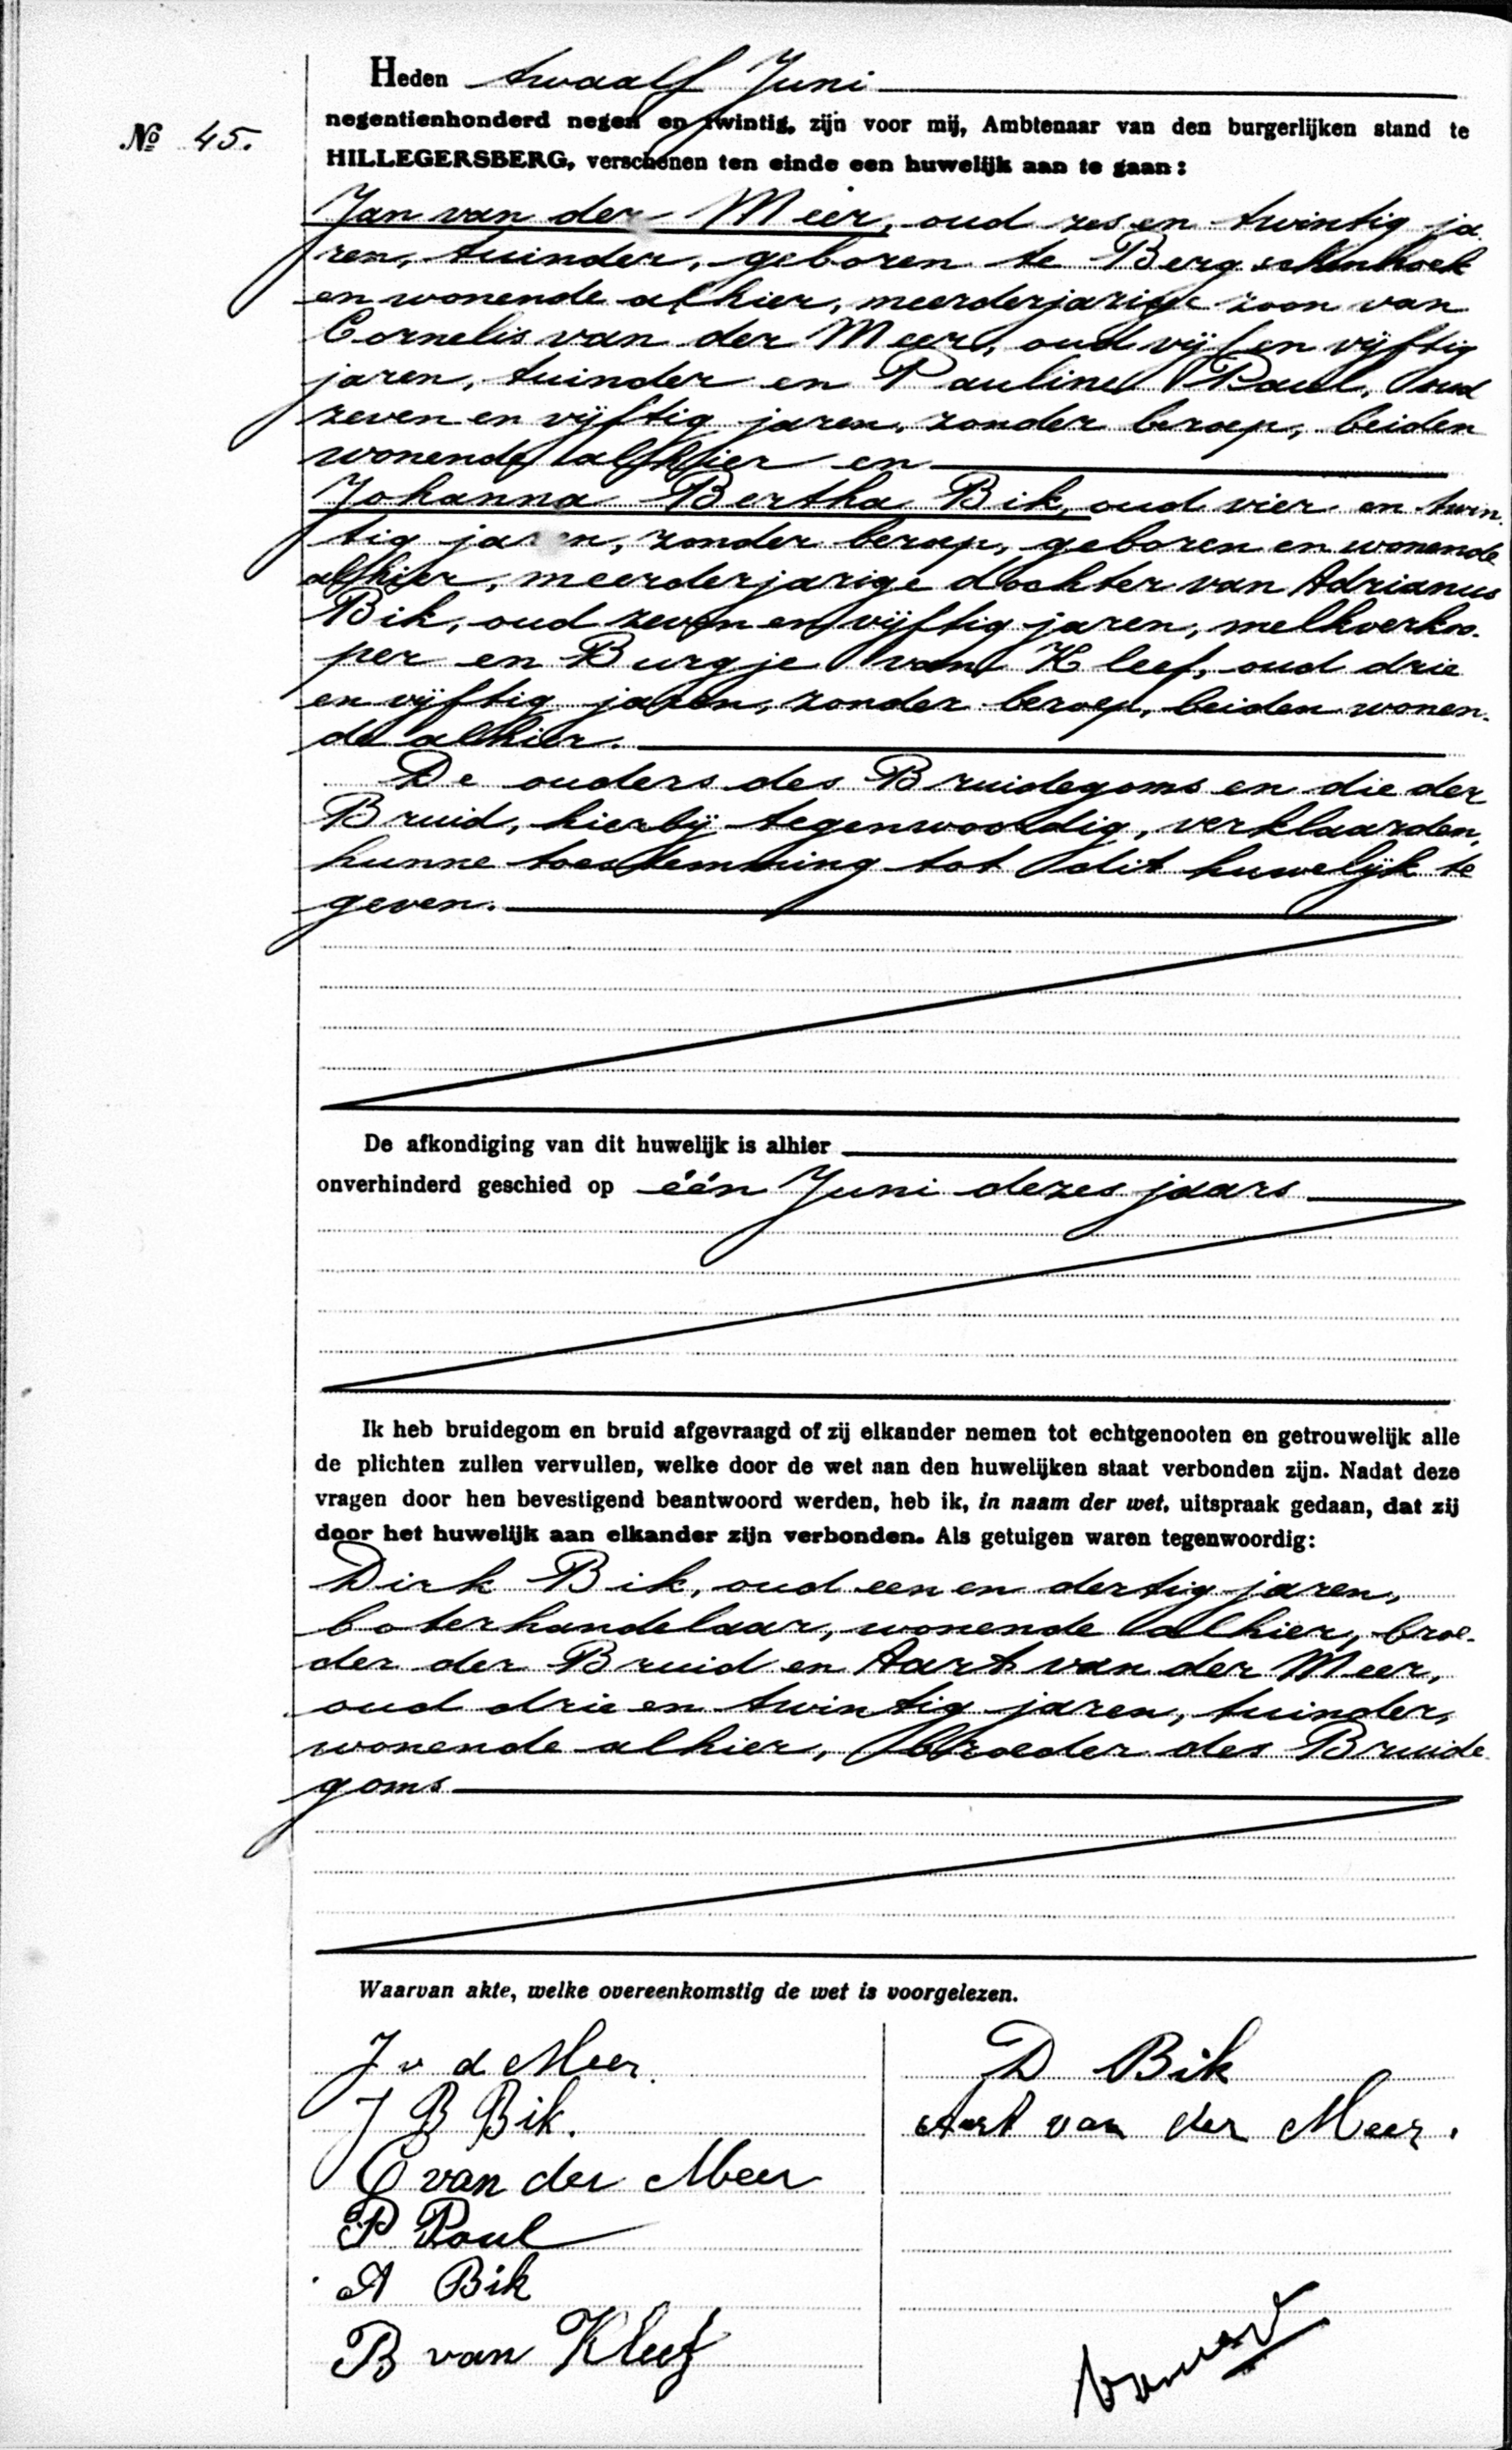 Heden twaalf Juni
No 45.
negentienhonderd negen en twintig, zijn voor mij, Ambtenaar van den burgerlijken stand te
HILLEGERSBERG, verschenen ten einde een huwelijk aan te gaan:
Jan van der Meer, oud zes en twintig ja
ren, tuinder, geboren te Bergschenhoek
en wonende alhier, meerderjarige zoon van
Cornelis van der Meer, oud vijf en vijftig
jaren, tuinder en Paulina Paul, oud
zeven en vijftig jaren, zonder beroep, beiden
wonende alhier en
Johanna Bertha Bik, oud vier en twin
tig jaren, zonder beroep, geboren en wonende
alhier, meerderjarige dochter van Adrianus
Bik, oud zeven en vijftig jaren, melkverkoo-
per en Burgje van Kleef, oud drie
en vijftig jaren, zonder beroep, beiden wonen-
de alhier.
De ouders des Bruidegoms en die der
Bruid, hierbij tegenwoordig, verklaarden,
hunne toestemming tot dit huwelijk te
geven.
De afkondiging van dit huwelijk is alhier
onverhinderd geschied op één Juni dezes jaars
Ik heb bruidegom en bruid afgevraagd of zij elkander nemen tot echtgenooten en getrouwelijk alle
de plichten zullen vervullen, welke door de wet aan den huwelijken staat verbonden zijn. Nadat deze
vragen door hen bevestigend beantwoord werden, heb ik, in naam der wet, uitspraak gedaan, dat zij
door het huwelijk aan elkander zijn verbonden. Als getuigen waren tegenwoordig:
Dirk Bik, oud een en dertig jaren,
boterhandelaar, wonende alhier, broe-
der der Bruid en Aart van der Meer,
oud drie en twintig jaren, tuinder,
wonende alhier, broeder des Bruide
goms
Waarvan akte, welke overeenkomstig de wet is voorgelezen.
J v d Meer.
J B Bik.
C van der Meer
P Poul
A Bik
B van Kleef
D Bik
Aart van der Meer.